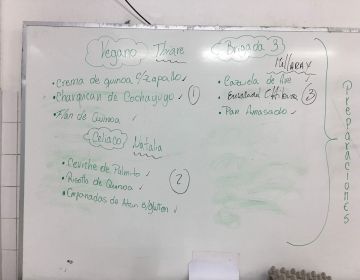 Vegano
• Crema de quinoa c/zapallo ✓
• Charquican de Cochayuyo ✓
①
• Flan de Quinoa ✓
Celiaco Natalia
• Ceviche de Palmito ✓
• Risotto de Quinoa ✓
②
• Empanadas de Atun s/gluten ✓
Brigada 3
• Cazuela de Ave ✓
• Ensalada
③
• Pan Amasado ✓
Preparaciones